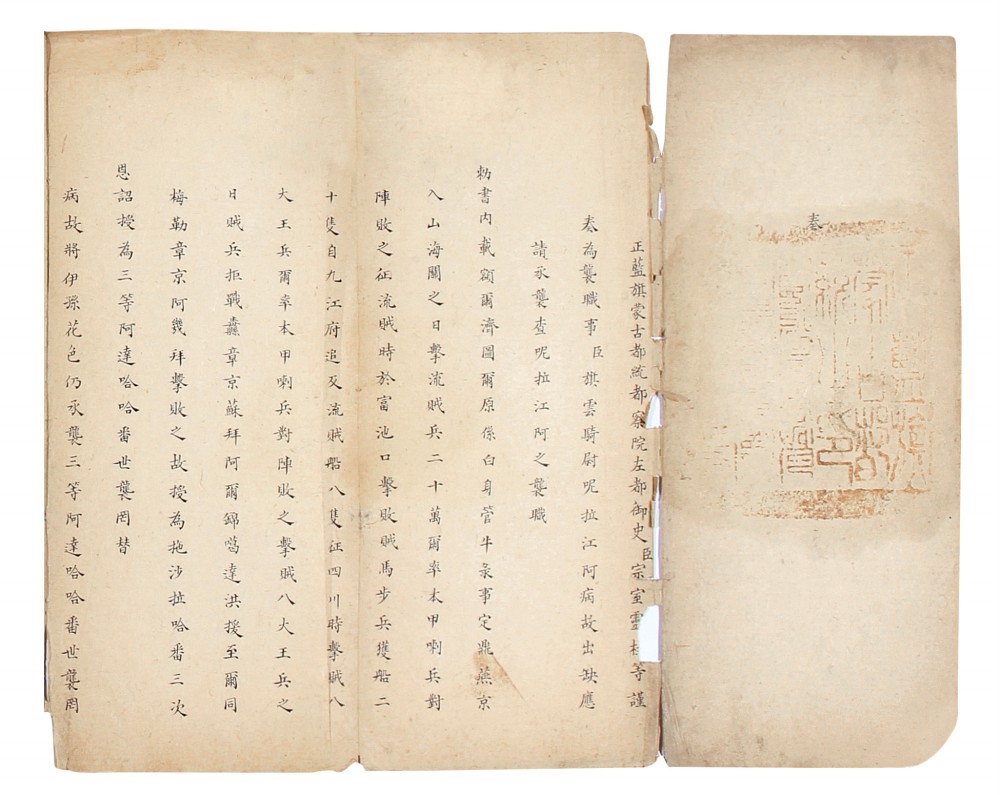 奏
正藍旗蒙古都統都察院左都御史臣宗室靈桂等謹
奏為襲職事臣旗雲騎尉呢拉江阿病故出缺應
請承襲查呢拉江阿之襲職
勅書內載額爾濟圖爾原係白身管牛彔事定鼎燕京
入山海關之日擊流賊兵二十萬爾率本甲喇兵對
陣敗之征流賊時於富池口擊敗賊馬步兵獲船二
十隻自九江府追及流賊船八隻征四川時擊賊八
大王兵爾率本甲喇兵對陣敗之擊賊八大王兵之
日賊兵拒戰纛章京蘇拜阿爾錦噶達洪援至爾同
梅勒章京阿幾拜擊敗之故授為拖沙拉哈番三次
恩詔授為三等阿達哈哈番世襲罔替
病故將伊孫花色仍承襲三等阿達哈哈番世襲罔